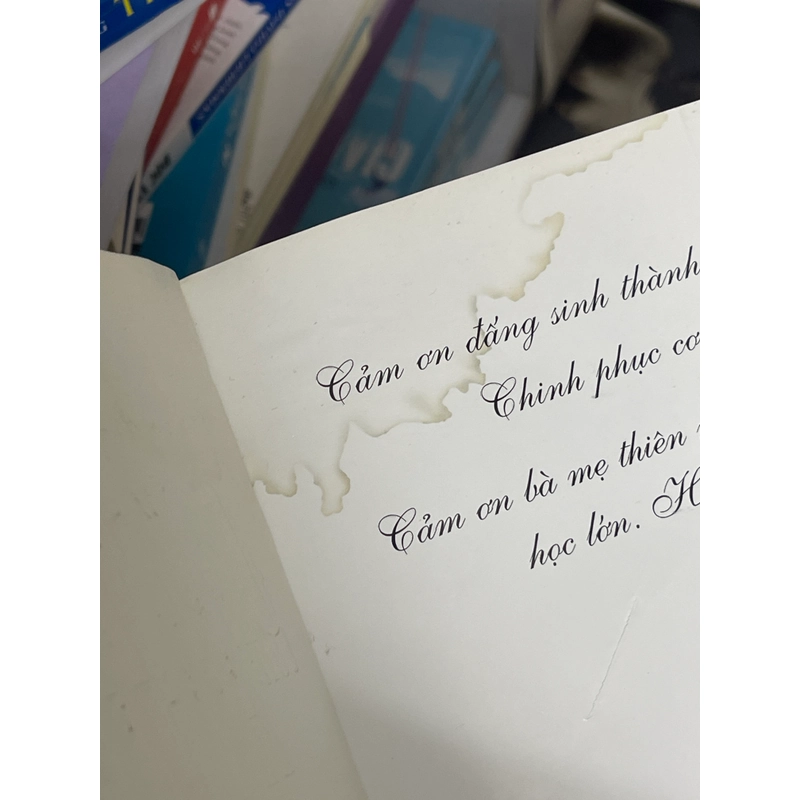 Cảm ơn đấng sinh thành
Chinh phục
Cảm ơn bà mẹ thiên
học lớn. H